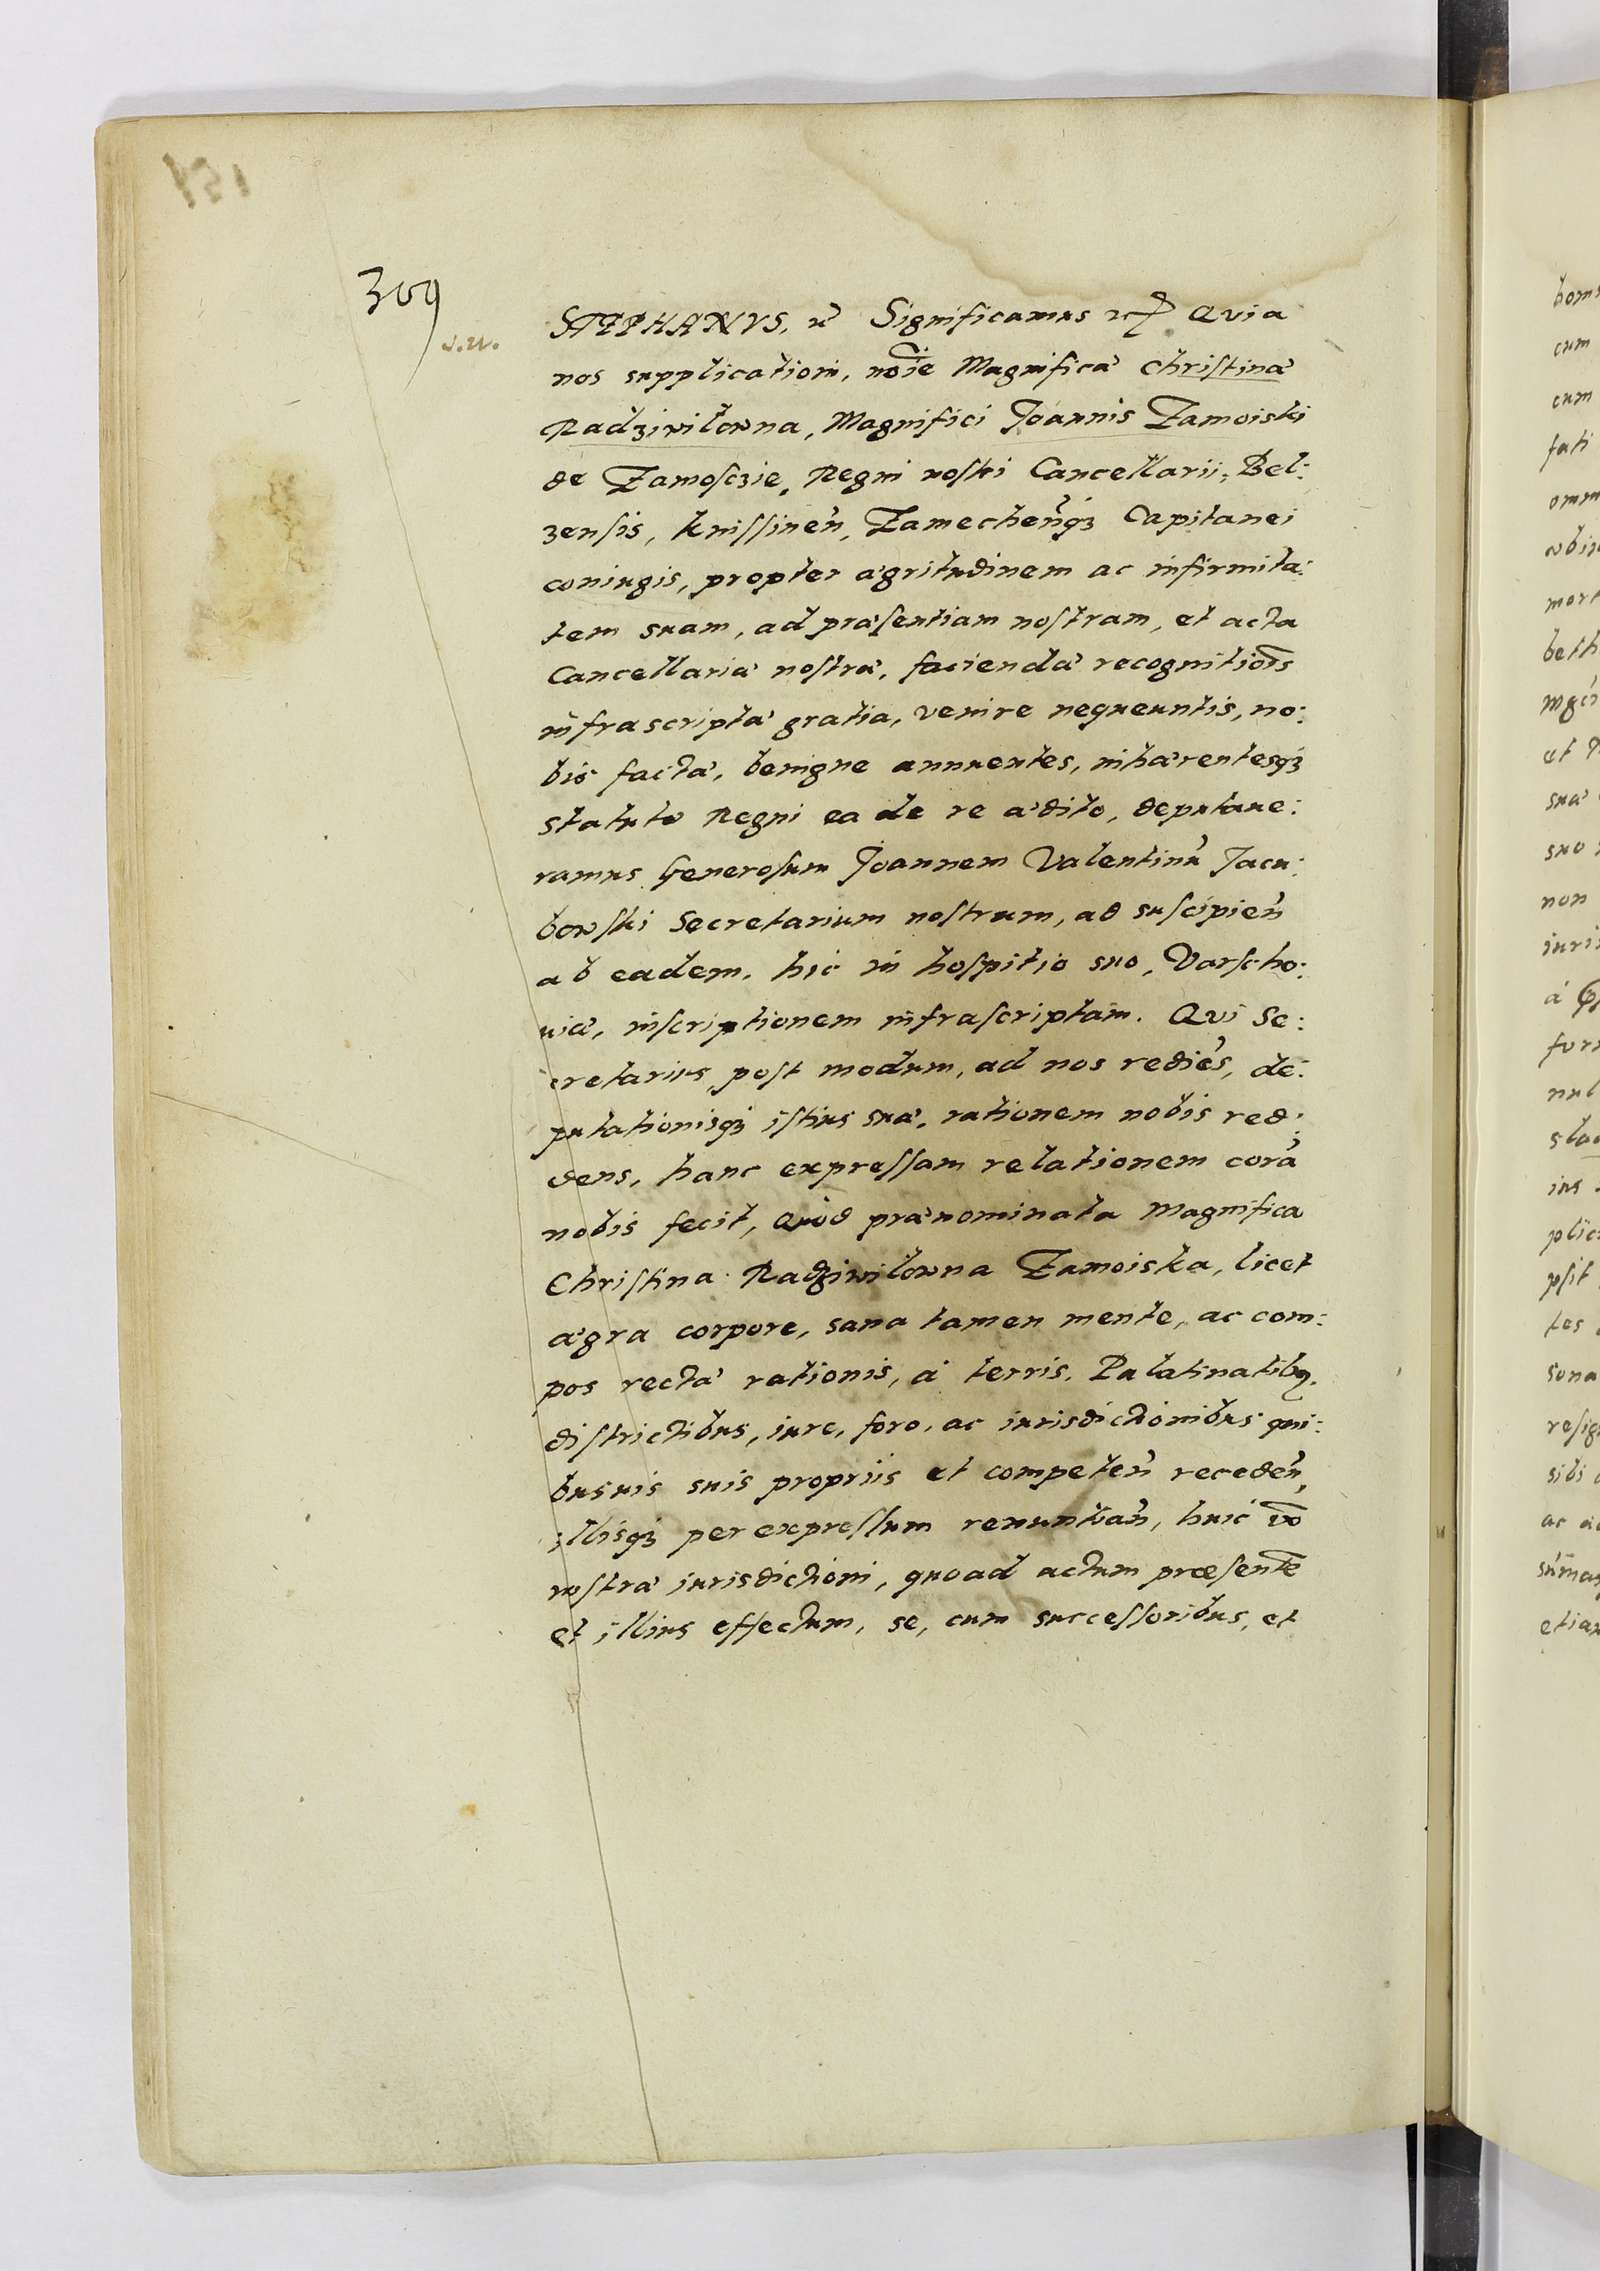 309
STEPHANVS, &c Significamus &c Quia
nos supplicationi, noīe Magnificæ Christinæ
Radziwilowna, Magnifici Joannis Zamoiski
de Zamosczie, Regni nostri Cancellarii, Bel:
zensis, Knissineñ, Zamecheñqz Capitanei
coniugis, propter ægritudinem ac infirmita:
tem suam, ad præsentiam nostram, et acta
Cancellariæ nostræ, faciendæ recognitiōis
infrascriptæ gratia, venire nequeuntis, no:
bis factæ, benigne annuentes, inhærentesqz
statuto Regni ea de re ædito, deputaue:
ramus Generosum Joannem Valentinū Jacu:
bowski Secretarium nostrum, ad suscipieñ
ab eadem, hic in hospitio suo, Varscho:
uiæ, inscriptionem infrascriptam. Qui Se:
cretarius post modum, ad nos rediēs, de:
putationisqz istius suæ, rationem nobis red:
dens, hanc expressam relationem corā
nobis fecit, Quòd prænominata Magnifica
Christina Radziwilowna Zamoiska, licet
ægra corpore, sana tamen mente, ac com:
pos rectæ rationis, à terris, Palatinatibq,
districtibus, iure, foro, ac iurisdictionibus qui:
busuis suis propriis et competeñ recedeñ,
illisqz per expressum renuntiañ, huic v̄o
nostræ iurisdictioni, quoad actum præsentē
et illius effectum, se, cum successoribus, et